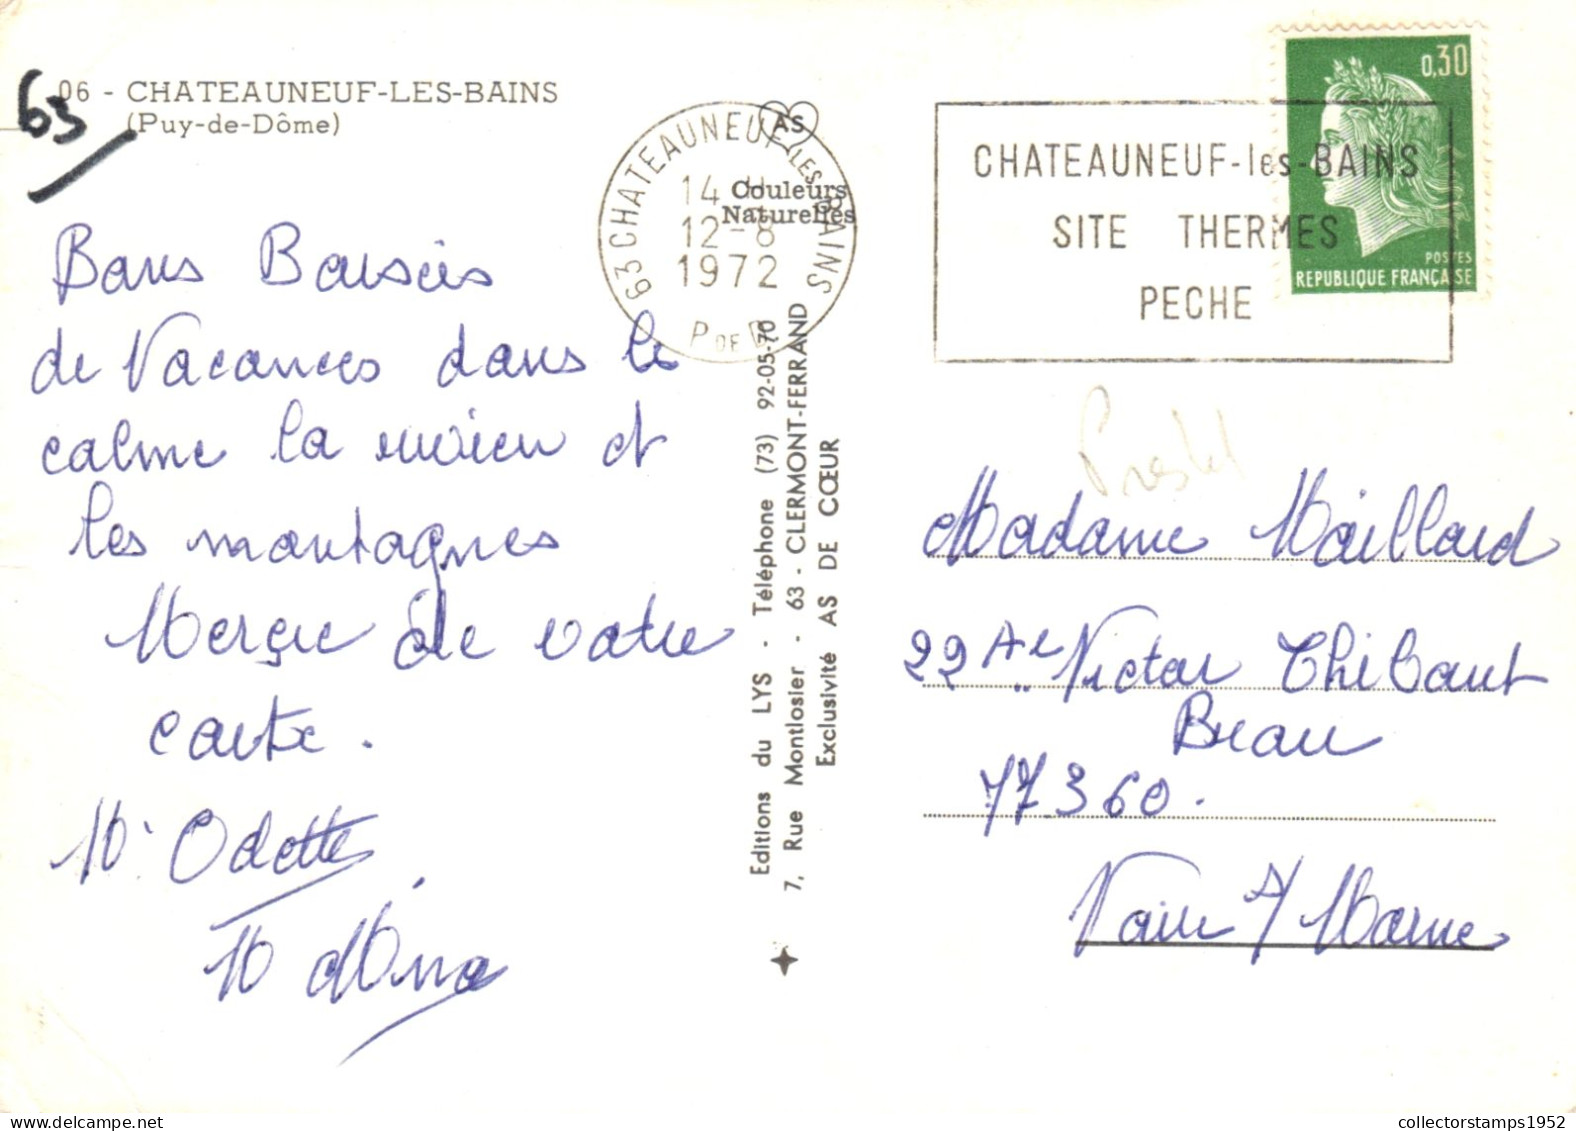 06 - CHATEAUNEUF-LES-BAINS
(Puy-de-Dôme)
63
Bons Baisers
de Vacances dans le
calme la rivière et
les montagnes
Merçie de votre
carte.
Mr Odette
M
AS
Couleurs
Naturelles
63 CHATEAUNEUF-LES-BAINS
14 H
12-8
1972
P DE D
CHATEAUNEUF-les-BAINS
SITE THERMES
PECHE
0,30
POSTES
REPUBLIQUE FRANÇAISE
Editions du LYS - Téléphone (73) 92-05-70
7, Rue Montlosier - 63 - CLERMONT-FERRAND
Exclusivité AS DE CŒUR
Madame Maillard
22 Victor Thibaut
Beau
77360.
Vaire s/ Marne
collectorstamps1952